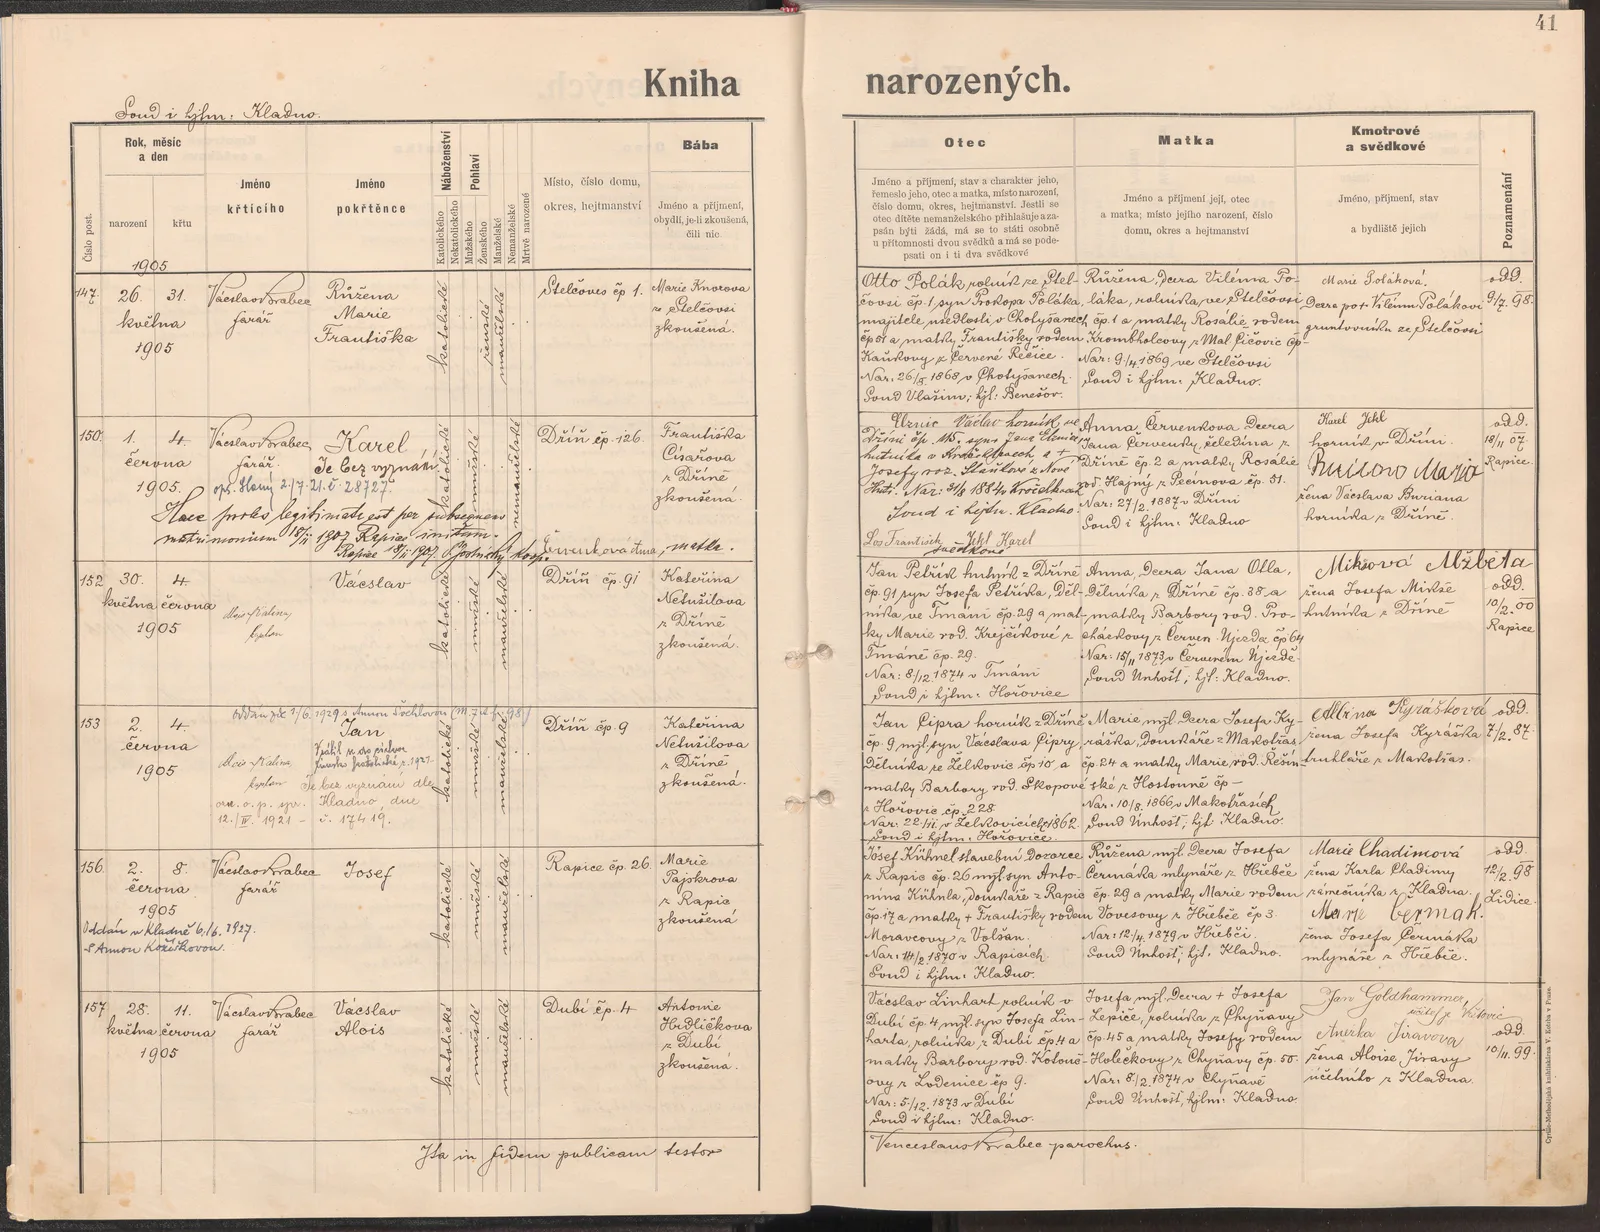 41
Kniha narozených.
Soud i hjtm: Kladno.
Číslo post.
Rok, měsíc
a den
narození
křtu
1905
Jméno
křtícího
Jméno
pokřtěnce
Náboženství
Katolického
Nekatolického
Pohlaví
Mužského
Ženského
Manželské
Nemanželské
Mrtvě narozené
Místo, číslo domu,
okres, hejtmanství
Bába
Jméno a příjmení,
obydlí, je-li zkoušená,
čili nic
Otec
Jméno a příjmení, stav a charakter jeho,
řemeslo jeho, otec a matka, místo narození,
číslo domu, okres, hejtmanství. Jestli se
otec dítěte nemanželského přihlašuje a za-
psán býti žádá, má se to státi osobně
u přítomnosti dvou svědků a má se pode-
psati on i ti dva svědkové
Matka
Jméno a příjmení její, otec
a matka; místo jejího narození, číslo
domu, okres a hejtmanství
Kmotrové
a svědkové
Jméno, příjmení, stav
a bydliště jejich
Poznamenání
147.
26. 31.
května
1905
Václav Vrabec
farář
Růžena
Marie
Františka
katolické
ženské
manželské
Stelčoves čp 1.
Marie Knorova
z Stelčovsi
zkoušená.
Otto Polák rolník ze Stel-
čovsi čp. 1 syn Prokopa Poláka,
majitele usedlosti v Chotýšanech
čp 51 a matky Františky rodem
Kaňkovy z Červené Řečice.
Nar: 26/5 1868 v Chotýšanech.
Soud Vlašim; hjt: Benešov.
Růžena, dcera Viléma Po-
láka, rolníka, ve Stelčovsi
čp. 1 a matky Rosálie rodem
Krombholcovy z Mal Čičovic čp-
Nar: 9/4. 1869 ve Stelčovsi
Soud i hjtm: Kladno.
Marie Poláková,
Dcera po+ Vilému Polákovi
gruntovníku ze Stelčovsi
odd.
9/7. 98.
150.
1. 4.
června
1905.
Václav Vrabec,
farář.
Karel
Je bez vyznání
ops. Slaný 2/7. 21. č. 28727.
Haec proles legitimata est per subsequens
matrimonium 18/II 1907 Rapice initum.
Rapice 18/II 1907.
katolické
mužské
nemanželské
Dříň čp. 126.
Františka
Císařova
z Dříně
zkoušená.
Červenková Anna, matka.
Václav horník ve
Dříni čp. 115. syn Jana
hutníka v Kročehlavech a +
Josefy roz.
Nar. 31/8 1884 v Kročehlavech
Soud i hejtm. Kladno.
Los František Jekl Karel
svědkové
Anna Červenkova Dcera
Jana Červenky, čeledína z
Dříně čp. 2 a matky Rosálie
rod. Hajny z Pecinova čp. 51.
Nar: 27/2. 1887 v Dříni
Soud i hjtm: Kladno
Karel Jekl
horník v Dříni.
Marie
žena Václava Buriana
horníka z Dříně.
odd.
18/II 07.
Rapice.
152
30. 4.
května června
1905
Alois Kalina,
kaplan
Václav
katolické
mužské
manželské
Dříň čp. 91
Kateřina
Netušilova
z Dříně
zkoušená.
Jan Petřík hutník z Dříně
čp. 91 syn Josefa Petříka, děl-
níka ve Tmáni čp. 29 a mat-
ky Marie rod. Krejčíkové z
Tmáně čp. 29.
Nar: 8/12. 1874 v Tmáni
Soud i hjtm: Hořovice
Anna, Dcera Jana Olla,
Dělníka z Dříně čp. 38 a
matky Barbory rod. Pro-
cházkovy z Červen. Újezda čp 64
Nar: 15/11 1873 v Červeném Újezdě.
Soud Unhošť; hjt: Kladno.
Miksová Alžběta
žena Josefa Mikše
hutníka z Dříně
odd.
10/2. 00
Rapice
153
2. 4.
června
1905
Alois Kalina,
kaplan
oddán zde 1/6. 1929 s Annou Šochlovou
Jan
Je bez vyznání dle
ozn. o. p. spr. Kladno, dne
12./IV. 1921 - č. 17419.
katolické
mužské
manželské
Dříň čp. 9
Kateřina
Netušilova
z Dříně
zkoušená.
Jan Cipra horník z Dříně
čp. 9 mjl. syn Václava Cipry
dělníka ze Želkovic čp 10, a
matky Barbory rod. Skopové
z Hořovic čp. 228
Nar: 22/11. v Želkovicích 1862.
Soud i hjtm: Hořovice.
Marie mjl. Dcera Josefa Ky-
ráška, domkáře z Makotřas
čp 24 a matky Marie, rod. Řešin-
ské z Hostouně čp -
Nar: 10/8. 1866 v Makotřasích
Soud Unhošť; hjt. Kladno.
Albina Kyrášková
žena Josefa Kyráška
truhláře z Makotřas.
odd.
7/2. 87.
156.
2. 8.
června
1905
Oddán v Kladně 6./6. 1927.
s Annou Kožíškovou.
Václav Vrabec
farář
Josef
katolické
mužské
manželské
Rapice čp. 26.
Marie
Pajskrova
z Rapic
zkoušená
Josef Kühnel stavební Dozorce
z Rapic čp. 26 mjl. syn Anto-
nína Kühnla, domkáře z Rapic
čp. 17 a matky + Františky rodem
Moravcovy z Volšan.
Nar: 14/2. 1870 v Rapicích.
Soud i hjtm: Kladno.
Růžena mjl. Dcera Josefa
Čermáka mlynáře z Hřebče
čp. 29 a matky Marie rodem
Vovesovy z Hřebče čp 3.
Nar: 12/4. 1879 v Hřebči
Soud Unhošť; hjt. Kladno.
Marie Chadimová
žena Karla Chadimy
zámečníka z Kladna.
Marie Čermák.
žena Josefa Čermáka
mlynáře z Hřebče.
odd.
12/2. 98
Lidice.
157
28. 11.
května června
1905
Václav Vrabec
farář
Václav
Alois
katolické
mužské
manželské
Dubí čp. 4
Antonie
Hrdličkova
z Dubí
zkoušená.
Václav Linhart rolník v
Dubí čp. 4, mjl. syn Josefa Lin-
harta, rolníka z Dubí čp 4 a
matky Barbory rod. Kotouč-
ovy z Lodenice čp 9.
Nar: 5./12. 1873 v Dubí
Soud i hjtm: Kladno.
Josefa mjl. Dcera + Josefa
Lepiče, rolníka z Chyňavy
čp. 45 a matky Josefy rodem
Holečkovy z Chyňavy čp. 50.
Nar: 8/2. 1874 v Chyňavě
Soud Unhošť, hjtm: Kladno.
Jan Goldhammer,
učitel z
Anežka Jiravova
žena Aloise Jiravy
účetního z Kladna.
odd
10/11. 99.
Ita in fidem publicam testor
Venceslaus Vrabec parochus.
Cyrillo-Methodějská knihtiskárna V. Kotrba v Praze.